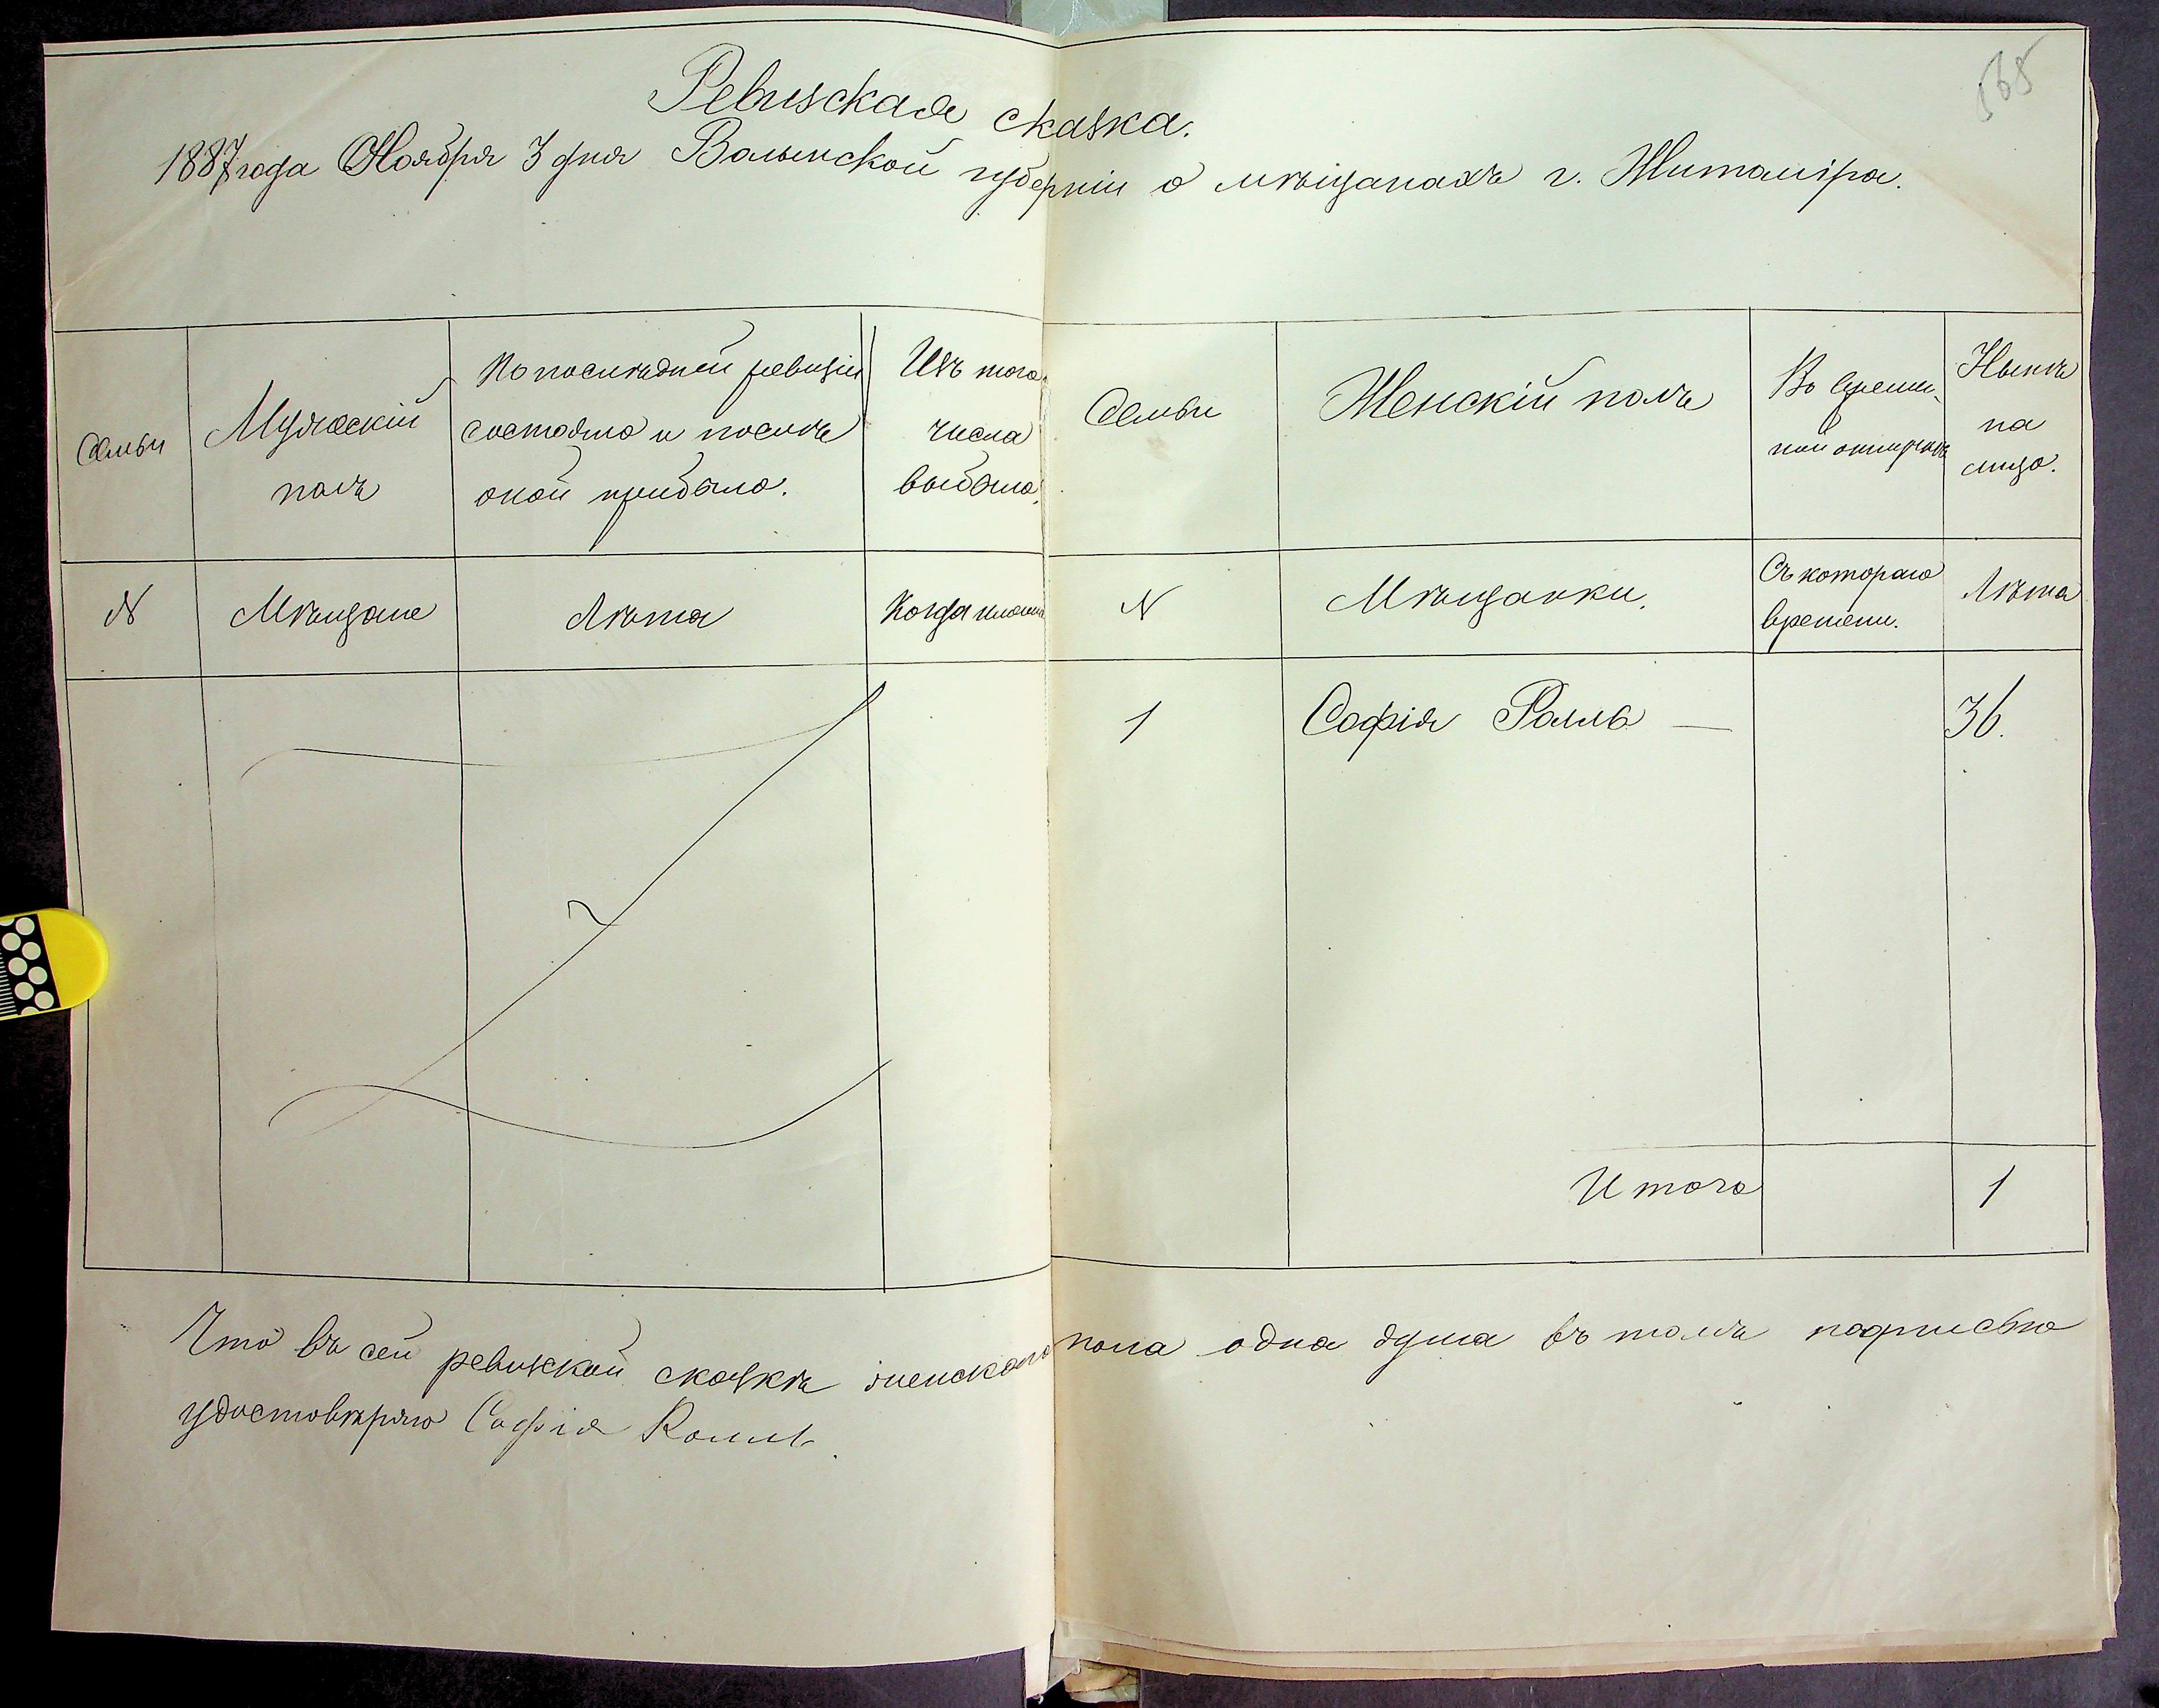 565
Ревизская сказка.
1887 года Ноября 3 дня Волынской губерніи о мѣщанахъ г. Житоміра.
Семьи
Мужескій
полъ
По послѣдней ревизіи
состояло и послѣ
оной прибыло.
Изъ того
числа
выбыло.
Семьи
Женскій полъ
Во времен-
ной отлучкѣ
Нынѣ
на
лицо.
N
Мѣщане
Лѣта
Когда именно
N
Мѣщанки.
Съ котораго
времени.
Лѣта
1
Софія Ролль —
36.
Итого
1
Что въ сей ревизкой сказкѣ женскаго пола одна душа въ томъ подписью
удостовѣряю Софія Ролль.